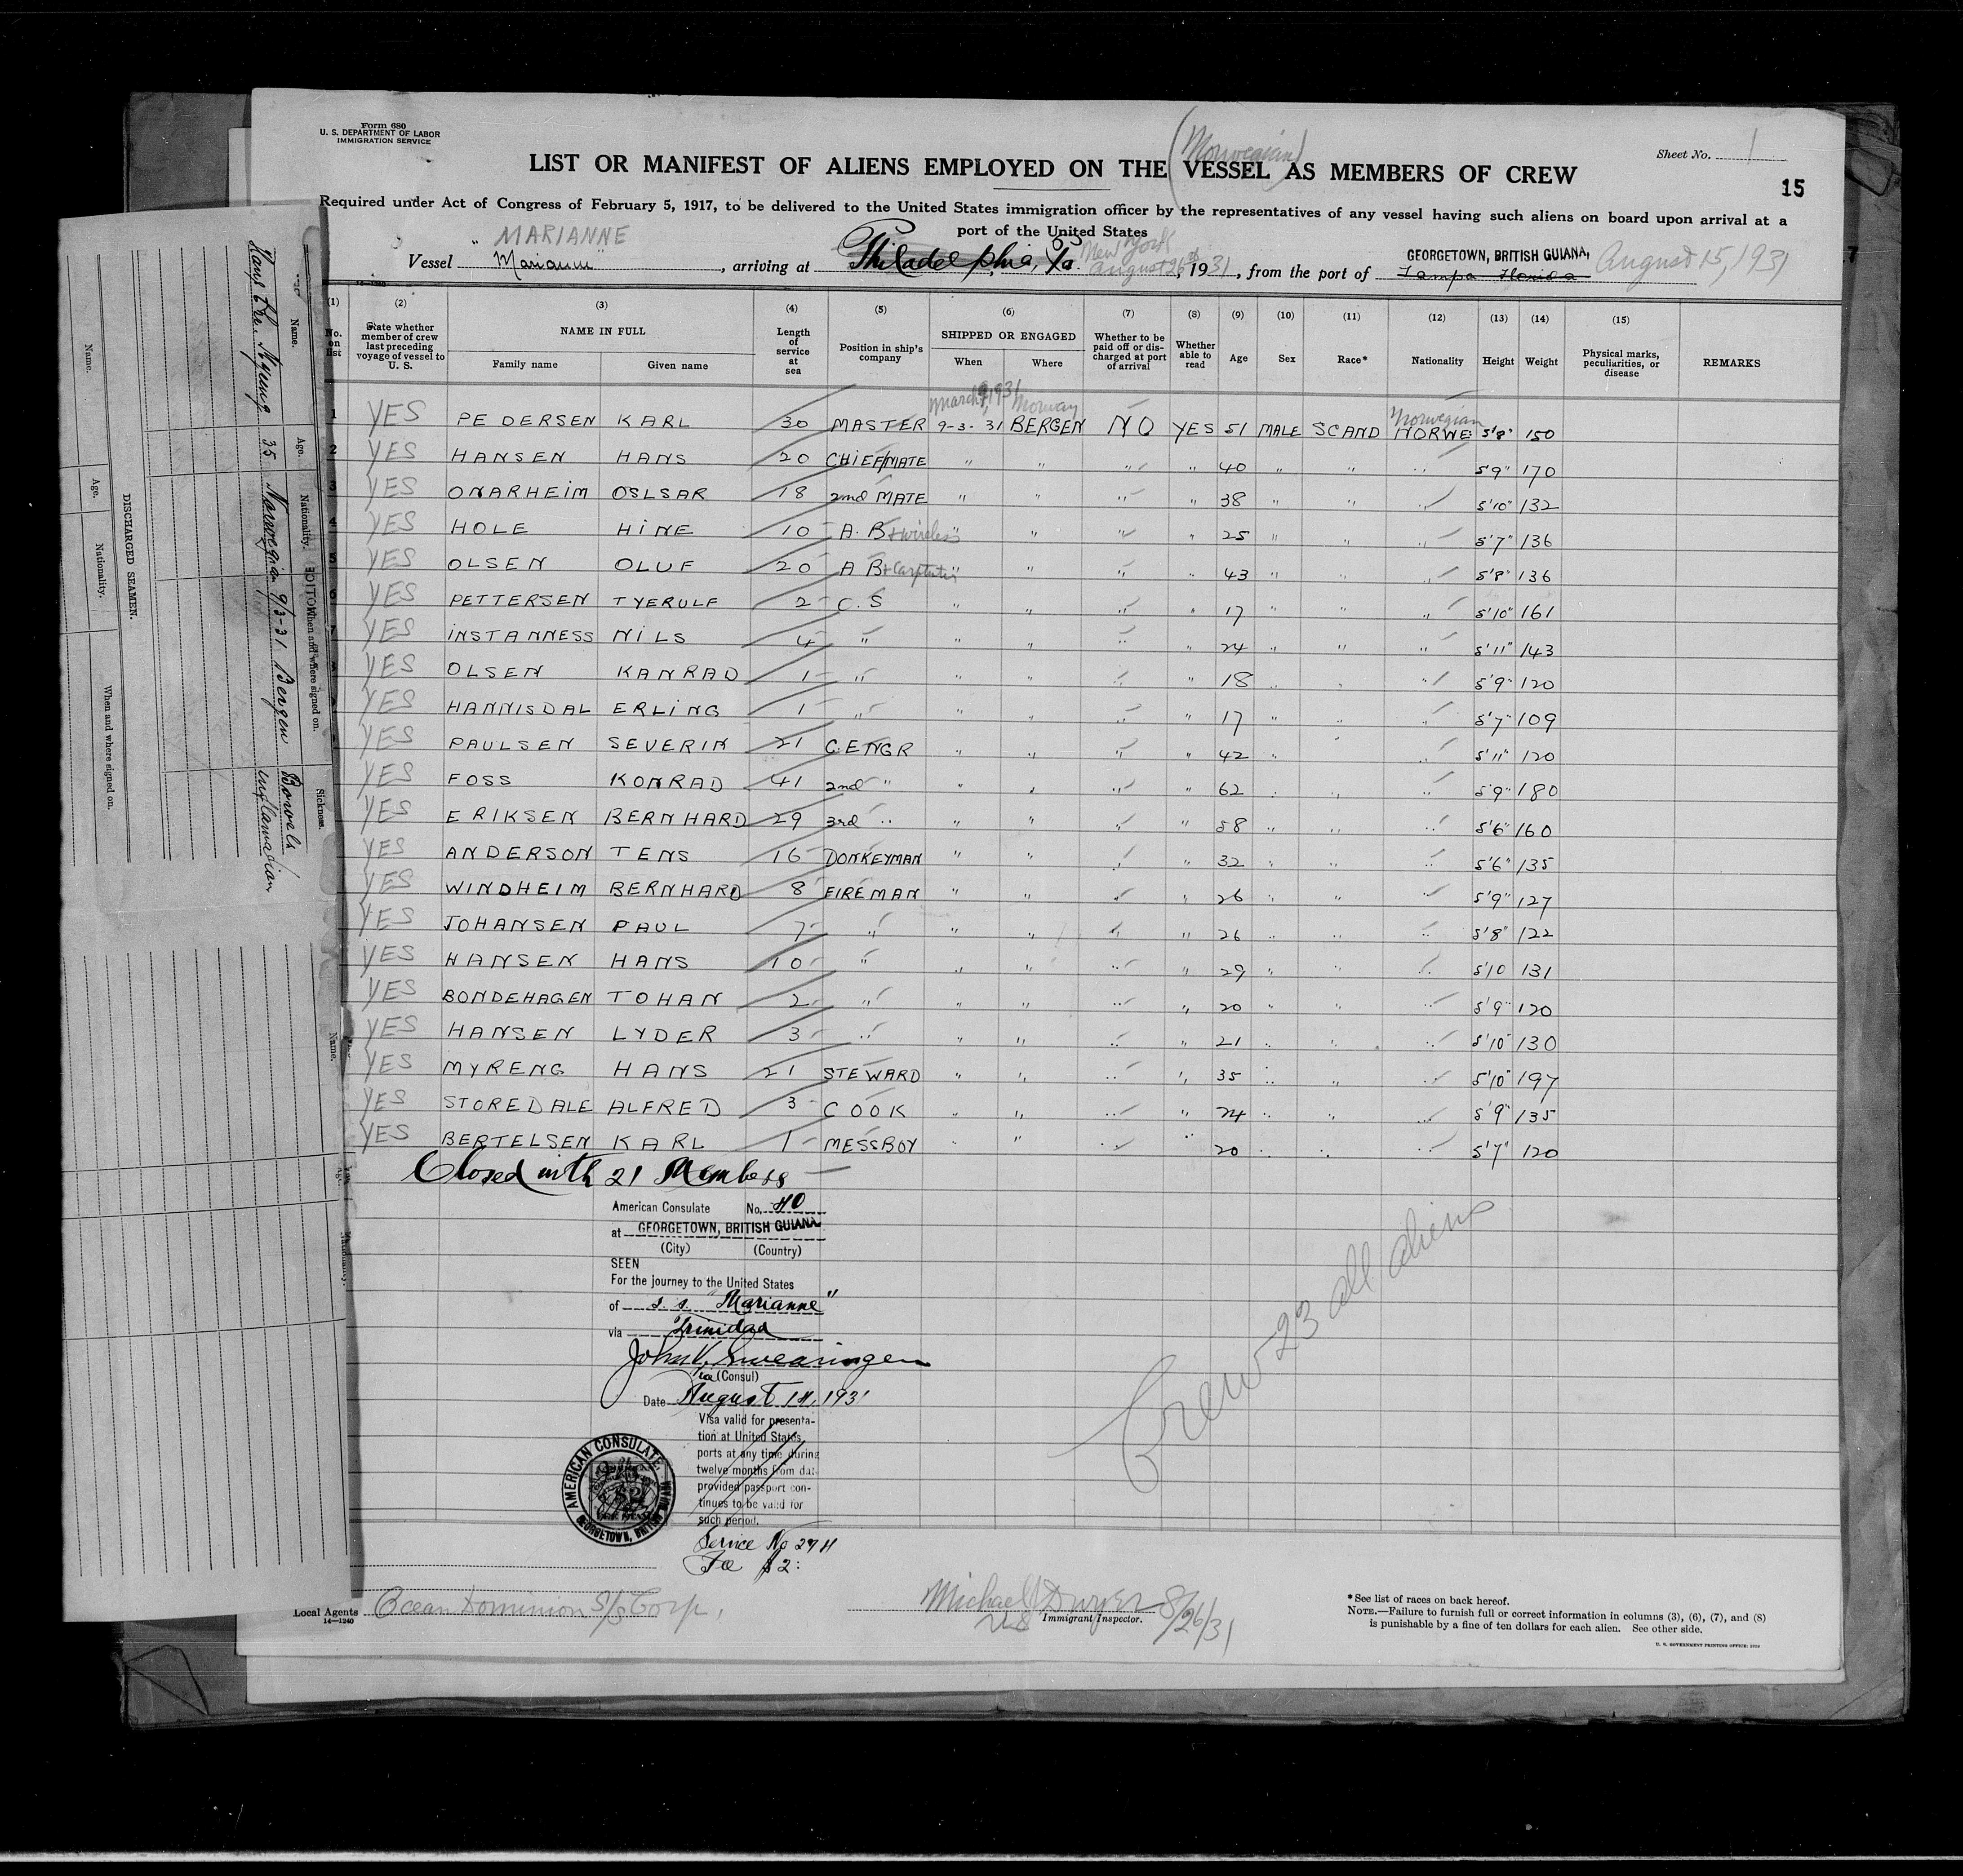 Form 680
U. S. DEPARTMENT OF LABOR
IMMIGRATION SERVICE
(Norwegian)
Sheet No. 1
LIST OR MANIFEST OF ALIENS EMPLOYED ON THE VESSEL AS MEMBERS OF CREW
15
Required under Act of Congress of February 5, 1917, to be delivered to the United States immigration officer by the representatives of any vessel having such aliens on board upon arrival at a
port of the United States
MARIANNE
New York
GEORGETOWN, BRITISH GUIANA, August 15, 1931
Vessel "Marianne", arriving at Philadelphia, Pa August 26th, 1931, from the port of Tampa Florida
(1) (2) (3) (4) (5) (6) (7) (8) (9) (10) (11) (12) (13) (14) (15)
No. on list
State whether member of crew last preceding voyage of vessel to U. S.
NAME IN FULL
Family name
Given name
Length of service at sea
Position in ship's company
SHIPPED OR ENGAGED
When
Where
Whether to be paid off or discharged at port of arrival
Whether able to read
Age
Sex
Race*
Nationality
Height
Weight
Physical marks, peculiarities, or disease
REMARKS
March 9, 1931 Norway Norwegian
1 YES PEDERSEN KARL 30 MASTER 9-3-31 BERGEN NO YES 51 MALE SCAND NORWE 5'8" 150
2 YES HANSEN HANS 20 CHIEF MATE " " " " 40 " " " 5'9" 170
3 YES ONARHEIM OSLSAR 18 2nd MATE " " " " 38 " " " 5'10" 132
4 YES HOLE HINE 10 A. B + wireless " " " " 25 " " " 5'7" 136
5 YES OLSEN OLUF 20 A B + Carpenter " " " " 43 " " " 5'8" 136
6 YES PETTERSEN TYERULF 2 C. S " " " " 17 " " " 5'10" 161
7 YES INSTANNESS NILS 4 " " " " " 24 " " " 5'11" 143
YES OLSEN KANRAD 1 " " " " " 18 " " " 5'9" 120
YES HANNISDAL ERLING 1 " " " " " 17 " " " 5'7" 109
YES PAULSEN SEVERIN 21 C. ENGR " " " " 42 " " " 5'11" 120
YES FOSS KONRAD 41 2nd " " " " " 62 " " " 5'9" 180
YES ERIKSEN BERNHARD 29 3rd " " " " " 58 " " " 5'6" 160
YES ANDERSON TENS 16 DONKEYMAN " " " " 32 " " " 5'6" 135
YES WINDHEIM BERNHARD 8 FIREMAN " " " " 26 " " " 5'9" 127
YES JOHANSEN PAUL 7 " " " " " 26 " " " 5'8" 122
YES HANSEN HANS 10 " " " " " 29 " " " 5'10 131
YES BONDEHAGEN TOHAN 2 " " " " " 20 " " " 5'9" 120
YES HANSEN LYDER 3 " " " " " 21 " " " 5'10" 130
YES MYRENG HANS 21 STEWARD " " " " 35 " " " 5'10" 197
YES STOREDALE ALFRED 3 COOK " " " " 24 " " " 5'9" 135
YES BERTELSEN KARL 1 MESSBOY " " " " 20 " " " 5'7" 120
Closed with 21 Members
American Consulate No. 40
at GEORGETOWN, BRITISH GUIANA
(City) (Country)
SEEN
For the journey to the United States
of s. s. "Marianne"
via Trinidad
John V. Swearingen
(Consul)
Date August 14, 1931
Visa valid for presenta-
tion at United States
ports at any time during
twelve months from date
provided passport con-
tinues to be valid for
such period.
Service No 274
Fee $2:
AMERICAN CONSULATE
GEORGETOWN, BRITISH GUIANA
Crew 23 all aliens
Local Agents Ocean Dominion S/S Corp.
14—1240
Michael J Dwyer 8/26/31
Immigrant Inspector.
*See list of races on back hereof.
NOTE.—Failure to furnish full or correct information in columns (3), (6), (7), and (8)
is punishable by a fine of ten dollars for each alien. See other side.
U. S. GOVERNMENT PRINTING OFFICE:
Name. Age. Nationality. When and where signed on. Sickness.
Hans Myreng 35 Norwegian 9/3-31 Bergen Bowels
inflamasian
DISCHARGED SEAMEN.
Name. Age. Nationality. When and where signed on.